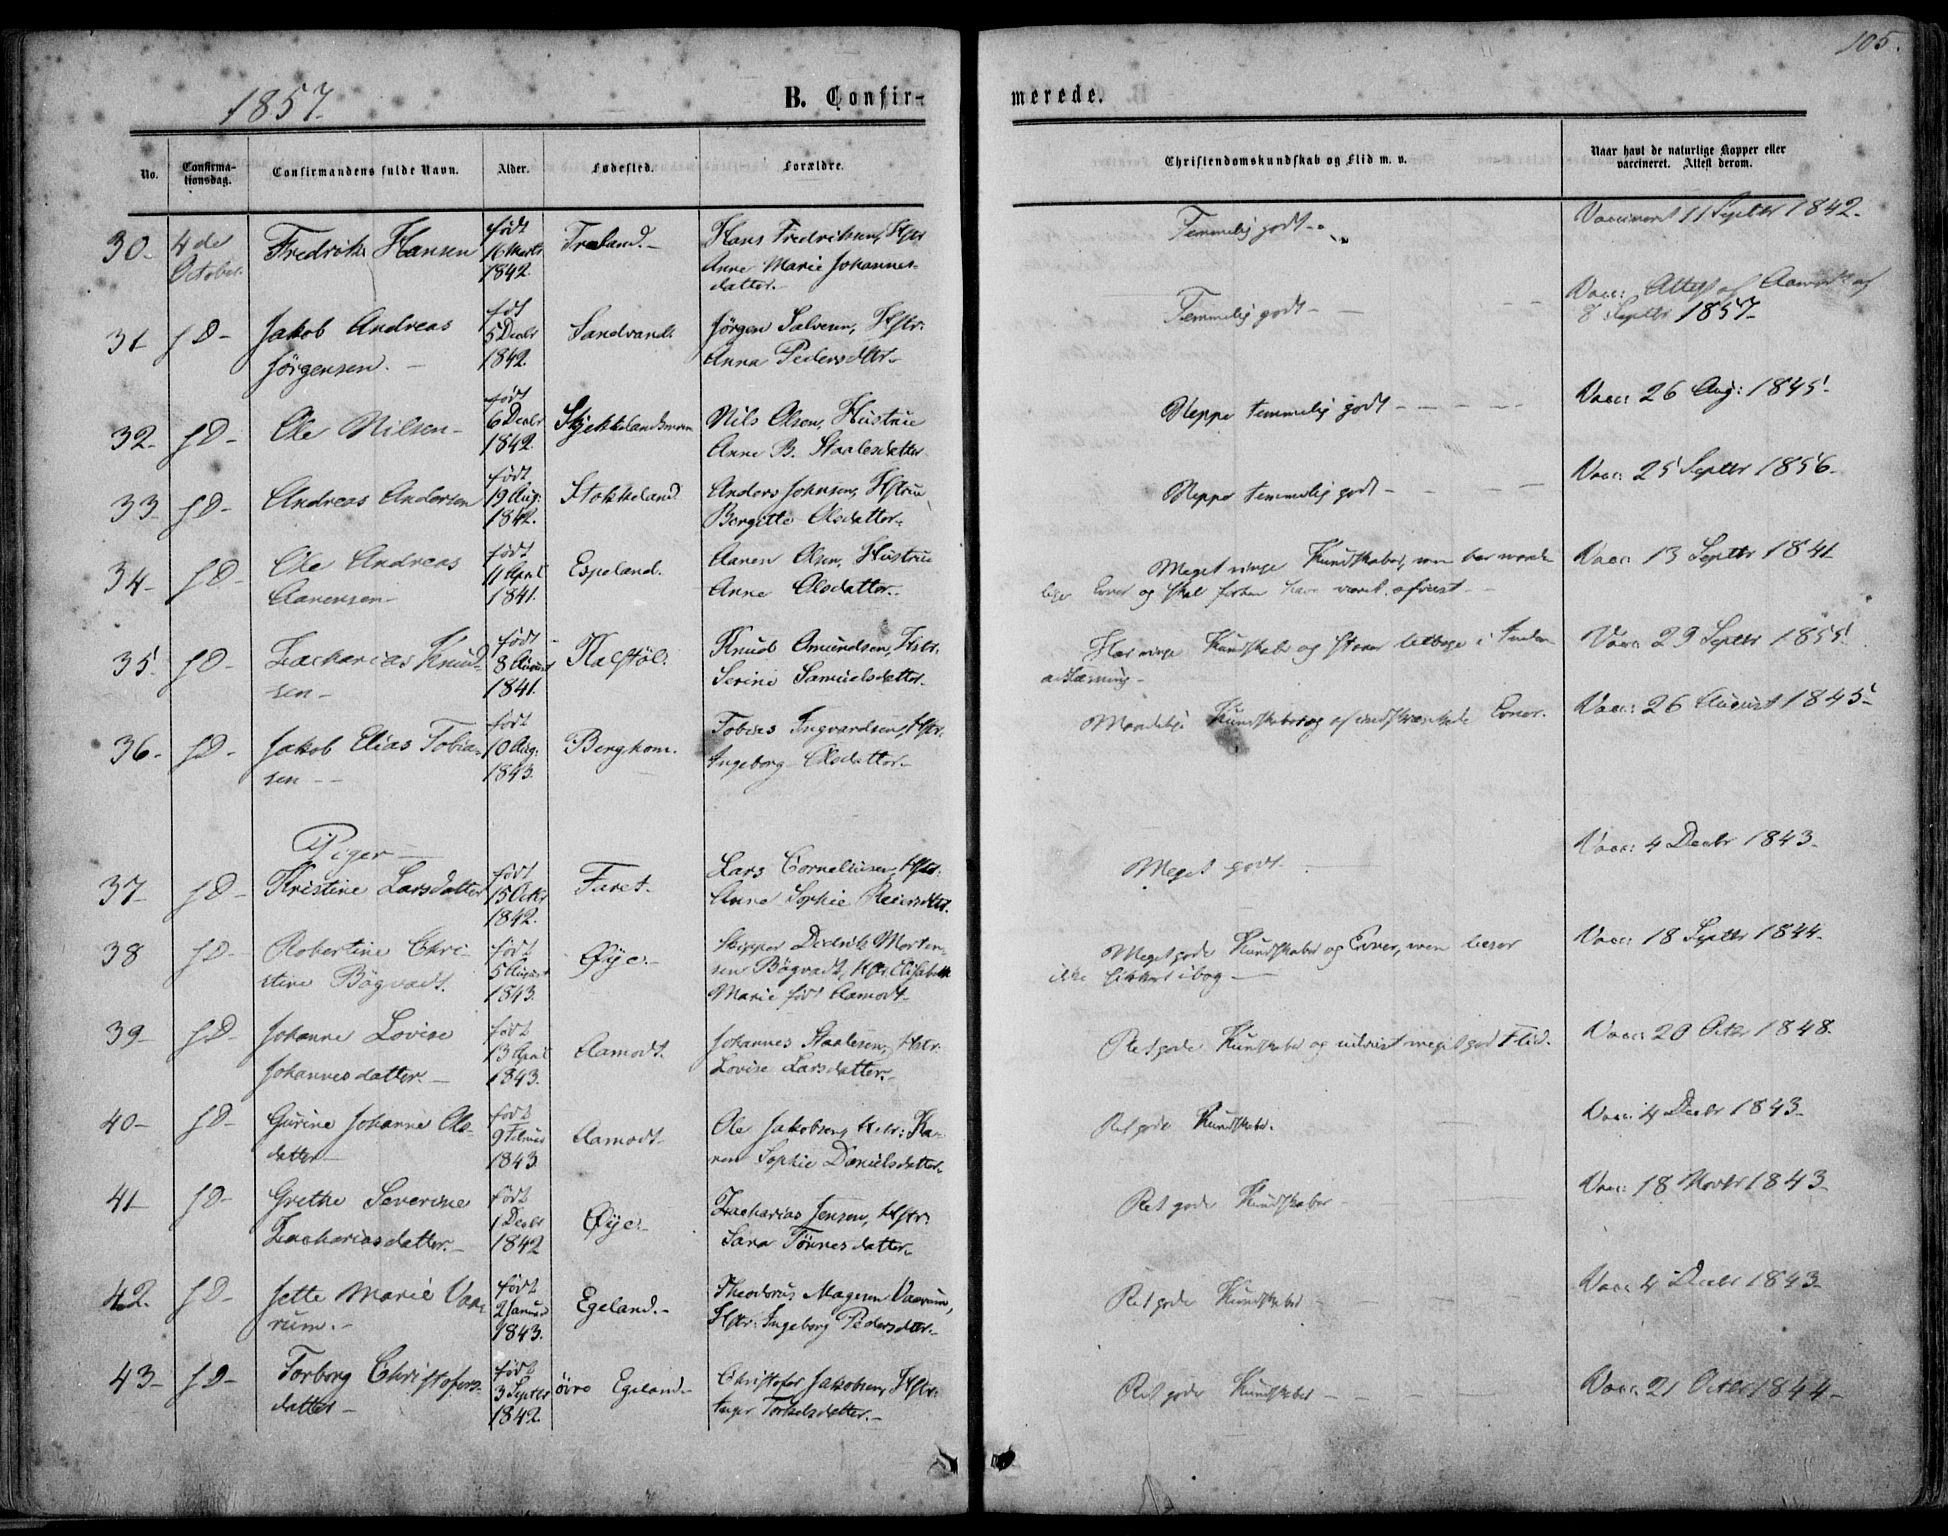 105.
1857.
B. Confir-
merede.
No.
Confirma-
tionsdag.
Confirmandens fulde Navn.
Alder.
Fødested.
Forældre.
Christendomskundskab og Flid m. v.
Naar havt de naturlige Kopper eller
vaccineret. Attest derom.
30.
4de
October
Fredrik Hansen
født
16 Marts
1842.
Træland.-
Hans Fredriksen, Hstr
Anne Marie Johannes-
datter.-
Temmelig godt-
Vaccineret 11 Septbr 1842.
31
fD-
Jakob Andreas
Jörgensen.
født
5 Decbr
1842.
Sandvand.
Jörgen Salvesen, Hstr:
Anna Pedersdttr.-
Temmelig godt-
Vacc: Attest af
8 Septbr 1857.
32-
fD-
Ole Nilsen-
født
6 Decbr
1842.
Nils Olsen, Hustrue
Anne B. Staalesdatter
Neppe temmelig godt
Vacc: 26 Aug: 1845.
33-
fD-
Andreas Andersen
født
19 Aug:
1842.
Stokkeland.
Anders Johnsen, Hstrue
Bergitte Olsdatter.
Neppe temmelig godt
Vacc: 25 Septbr 1856-
34-
fD-
Ole Andreas
Aanensen
født
11 April
1841.
Espeland.
Aanen Olsen, Hustrue
Anne Olsdatter.
Meget ringe Kundskaber,
Evner og skal forhen have været afviist-
Vacc: 13 Septbr 1841.
35.
fD-
Zacharias Knud-
sen-
født
8 August
1841.
Kalstöl.
Knud Amundsen, Hstr.
Serine Samuelsdatter-
Har ringe Kundskaber og staaer tilbage i
Vacc: 29 Septbr 1855.
36-
fD-
Jakob Elias Tobia-
sen--
født
10 Aug:
1843.
Berghom.
Tobias Ingvardsen, Hstr.
Ingeborg Olsdatter-
Maadelige Kundskaber og Evner.
Vacc: 26 August 1845.
Piger-
37-
fD-
Kristine Larsdatter
født
15 Octbr
1842.
Faret.
Lars Corneliusen, Hstr.
Anne Sophie Reiersdtr.
Meget godt
Vacc: 4 Decbr 1843.
38
fD-
Robertine Chri-
stine Bögvadt.
født
5 August
1843.
Øye.-
Skipper Didrik Morten-
sen Bögvadt, Hstr: Elisabeth
Marie født Aamodt-
Meget gode Kundskaber og Evner, men læser
ikke sikkert i bog-
Vacc: 18 Septbr 1844.
39-
fD-
Johanne Lovise
Johannesdatter.-
født
13 April
1843.
Aamodt.
Johannes Staalesen, Hstr:
Lovise Larsdatter.
Ret gode Kundskaber og udviist meget god Flid.
Vacc: 20 Octbr 1848.
40-
fD-
Gurine Johanne Ols-
datter-
født
9 Februar
1843
Aamodt-
Ole Jakobsen, Hstr: Ka-
ren Sophie Danielsdatter
Ret gode Kundskaber.
Vacc: 4 Decbr 1843-
41-
fD-
Grethe Severine
Zachariasdatter.-
født
1 Decbr
1842
Øye.-
Zacharias Jensen, Hstr:
Sara Tönnesdatter.
Ret gode Kundskaber
Vacc: 18 Novbr 1843-
42.
fD-
Jette Marie Vaa-
rum.-
født
2 Januar
1843.
Egeland.-
Theodorus Magnus Vaarum,
Hstr: Ingeborg Pedersdttr.-
Ret gode Kundskaber
Vacc: 4 Decbr 1843-
43-
fD-
Torborg Christofers-
datter-
født
3 Septbr
1842.
övre Egeland.-
Christofer Jakobsen, Hstr:
Inger Torkelsdatter.-
Ret gode Kundskaber
Vacc: 21 Octbr 1844-